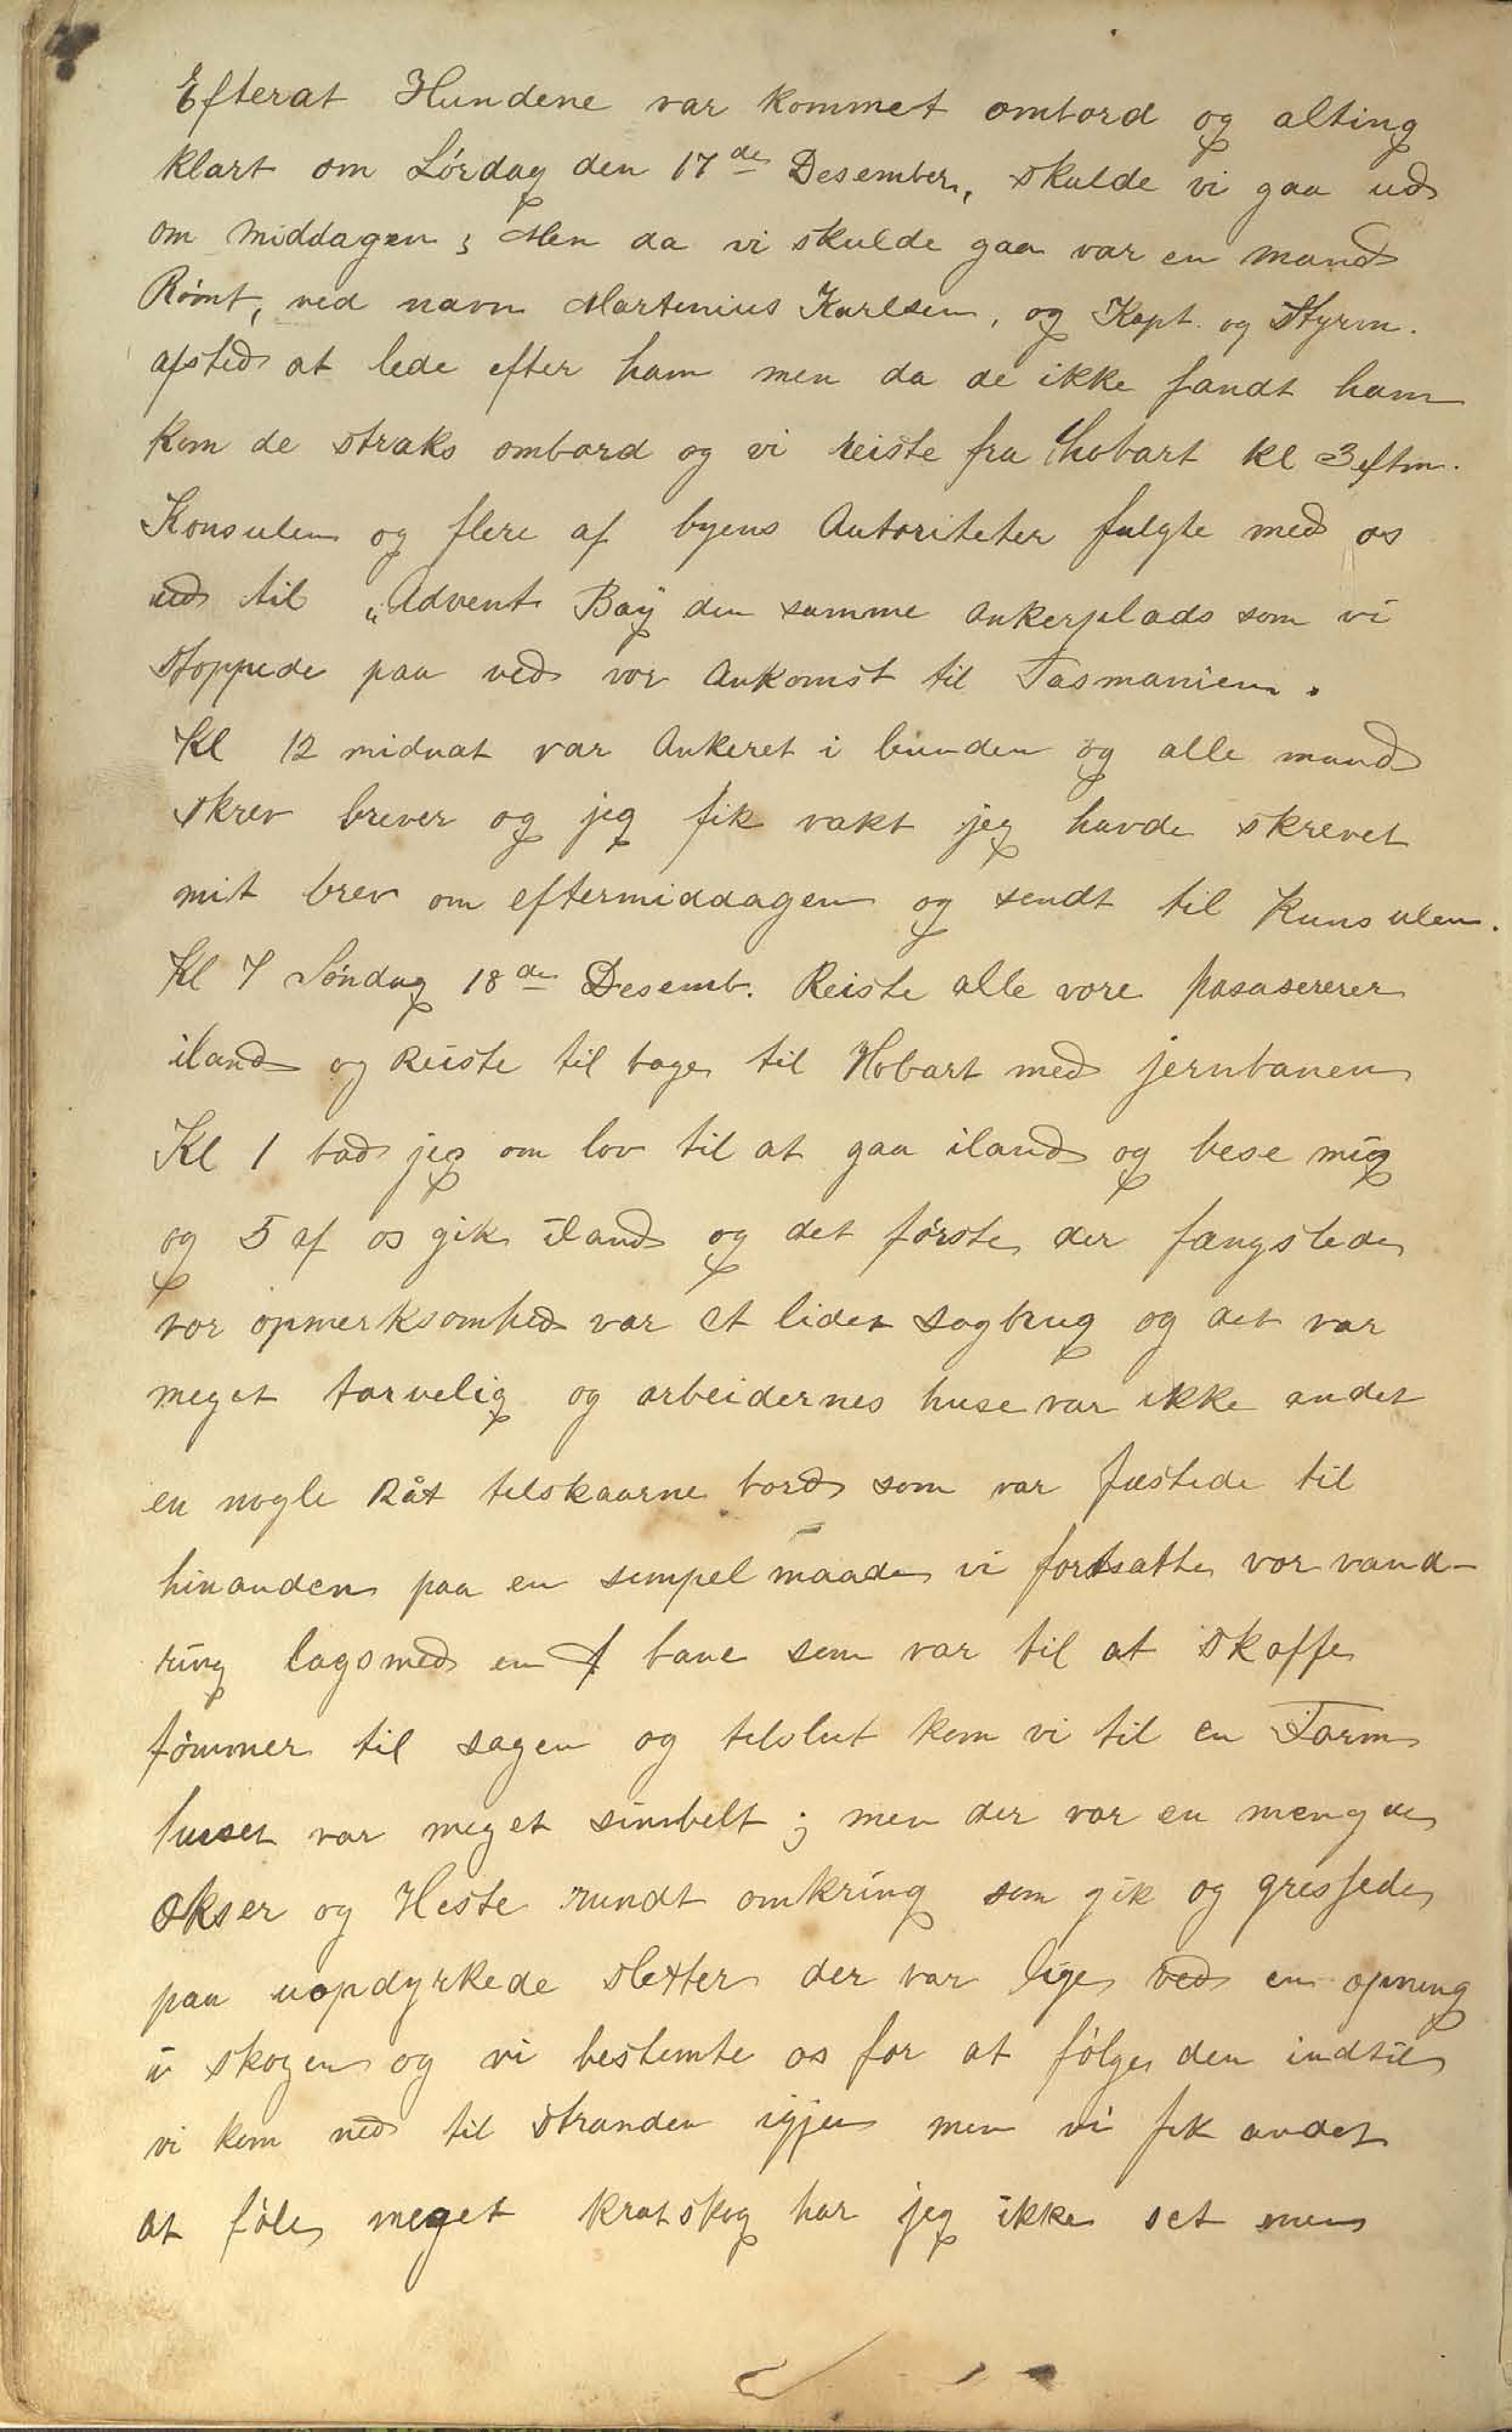 Efterat Hundene var kommet ombord og alting
klart om Lørdag den 17de Desember, skulde vi gaa ud
om middagen; Men da vi skulde gaa var en mand
Rømt, ved navn Martinius Karlsen, og Kapt. og Styrm.
afsted at lede efter ham men da de ikke fandt ham
kom de straks ombord og vi reiste fra Hobart kl 3 eftm.
Konsulen og flere af byens Autoriteter fulgte med os
ud til „Advent Bay den samme ankerplads som vi
stoppede paa ved vor Ankomst til Tasmanien.
Kl 12 midnat var Ankeret i bunden og alle mand
skrev brever og jeg fik vakt jeg havde skrevet
mit brev om eftermiddagen og sendt til Kunsulen.
Kl 7 Søndag 18de Desemb. Reiste alle vore pasaserer
iland og Reiste til bage til Hobart med jernbanen
Kl 1 bad jeg om lov til at gaa iland og bese mig
og 5 af os gik iland og det første der fangslede
vor opmerksomhed var et lidet sagbrug og det var
meget tarvelig og arbeidernes huse var ikke andet
en nogle Råt telskaarne bord som var festede til
hinanden paa en simpel maade vi fortsatte vor vand-
ring lagsmed en bane som var til at skaffe
tømmer til sagen og telslut kom vi til en Farm
huset var meget simbelt; men der var en mengde
Okser og Heste rundt omkring som gik og gressede
paa uopdyrkede sletter der var lige ved en opning
i skogen og vi bestemte os for at følge den indtil
vi kom ned til stranden igjen men vi fik andet
at føle meget kratskog har jeg ikke set men